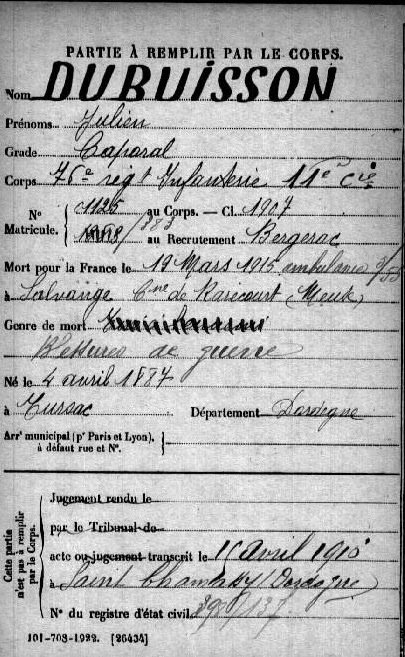 PARTIE À REMPLIR PAR LE CORPS.
Nom DUBUISSON
Prénoms Julien
Grade Caporal
Corps 76e régt Infanterie 11e Cie
N° Matricule. { 1125 au Corps. — Cl. 1907
/883 au Recrutement Bergerac
Mort pour la France le 19 Mars 1915 ambulance
à Salvange Cne de Rarécourt (Meuse)
Genre de mort
Blessures de guerre
Né le 4 avril 1887
à Tursac Département Dordogne
Arrt municipal (pr Paris et Lyon),
à défaut rue et N°.
Cette partie n'est pas à remplir par le Corps.
Jugement rendu le
par le Tribunal de
acte ou jugement transcrit le avril
à Saint Chamassy Dordogne
N° du registre d'état civil 137
101-708-1922. [26434]